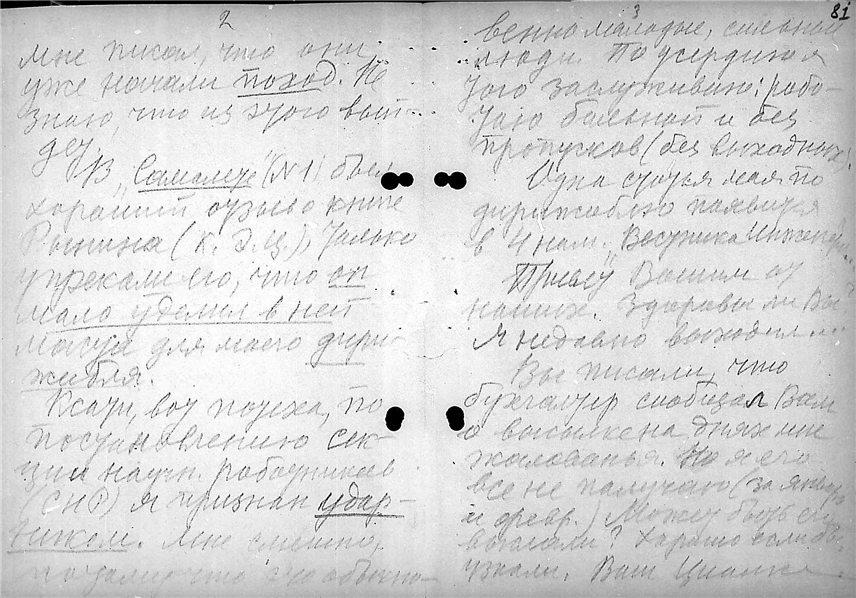 2
мне писал, что они
уже начали поход. Не
знаю, что из этого вый-
дет.
В „Самолете" (№1) был
хороший отзыв о книге
Рынина (К. Э. Ц.), только
упрекали его, что он
мало уделил в ней
места для моего дири-
жабля.
Кстати, вот потеха, по
постановлению сек-
ции научн. работников
(СНР) я признан удар-
ником. Мне смешно,
потому что это обыкно-
3
81
венно молодые, сильные
люди. По усердию я
того заслуживаю: рабо-
таю больной и без
пропусков (без выходных).
Одна статья моя по
дирижаблю появится
в 4 ном. Вестника Инженер
Привет Вашим от
наших. Здоровы ли Вы
Я недавно выходил...
Вы писали, что
бухгалтер сообщал Вам
о высылке на днях мне
жалованья. Но я его
все не получаю (за январь
и февр.) Может быть
выслали? Хорошо если бы
узнали. Ваш Циолк